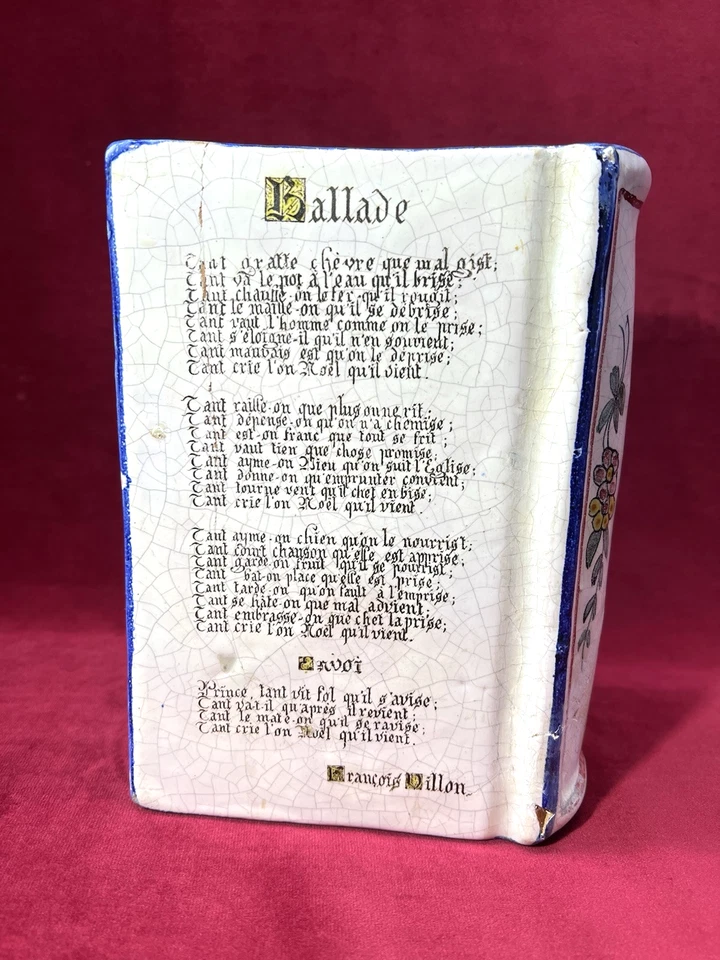 Ballade
Tant gratte chèvre que mal gist;
Tant va le pot à l'eau qu'il brise;
Tant chauffe-on le fer qu'il rougit;
Tant le maille-on qu'il se débrise;
Tant vaut l'homme comme on le prise;
Tant s'éloigne-il qu'il n'en souvient;
Tant mauvais est qu'on le déprise;
Tant crie l'on Noël qu'il vient.
Tant raille-on que plus on ne rit;
Tant dépense-on qu'on n'a chemise;
Tant est-on franc que tout se frit;
Tant vaut tien que chose promise;
Tant ayme-on Dieu qu'on suit l'Eglise;
Tant donne-on qu'emprunter convient;
Tant tourne vent qu'il chet en bise;
Tant crie l'on Noël qu'il vient.
Tant ayme-on chien qu'on le nourrist;
Tant court chanson qu'elle est apprise;
Tant garde-on fruit qu'il se pourrist;
Tant bat-on place qu'elle est prise;
Tant tarde-on qu'on fault à l'emprise;
Tant se hâte-on que mal advient;
Tant embrasse-on que chet la prise;
Tant crie l'on Noël qu'il vient.
Envoi
Prince, tant vit fol qu'il s'avise;
Tant va-t-il qu'après il revient;
Tant le mate-on qu'il se ravise;
Tant crie l'on Noël qu'il vient.
François Villon